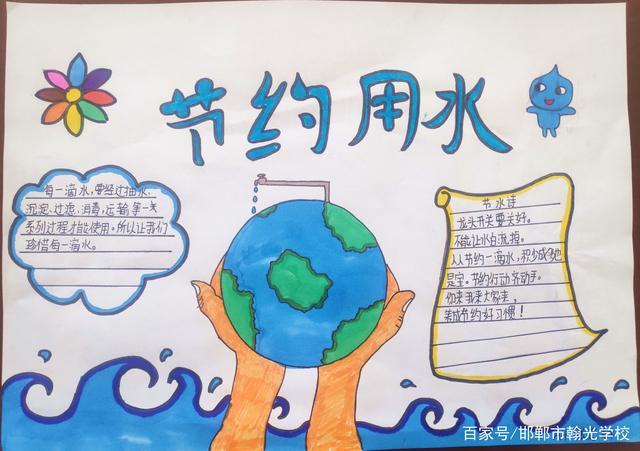 节约用水
每一滴水，要经过抽水、
沉淀、过滤、消毒、运输等一
系列过程才能使用。所以让我们
珍惜每一滴水。
节水谣
龙头开关要关好。
不能让水白流掉。
人人节约一滴水，积少成多地
是宝。节约行动齐动手。
你来我来大家来，
养成节约好习惯！
百家号/邯郸市翰光学校